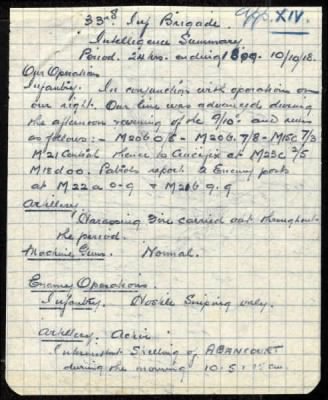 App. XIV.
33rd Inf Brigade
Intelligence Summary
Period. 24 hrs. ending 1800. 10/10/18.
Our Operations
Infantry. In conjunction with operations on
our right. Our line was advanced during
the afternoon & evening of the 9/10th and runs
as follows:- M20b 0/8 - M20b. 7/8 - M15c 7/3
M.21 Central thence to Crucifix at M23c 2/5
M18d00. Patrols report 2 Enemy posts
at M22a 0-9 & M26b 9.9
Artillery
Harassing Fire carried out throughout
the period.
Machine Guns. Normal.
Enemy Operations.
Infantry. Hostile Sniping only.
Artillery. Active
Intermittent Shelling of ABANCOURT
during the morning 10.5.